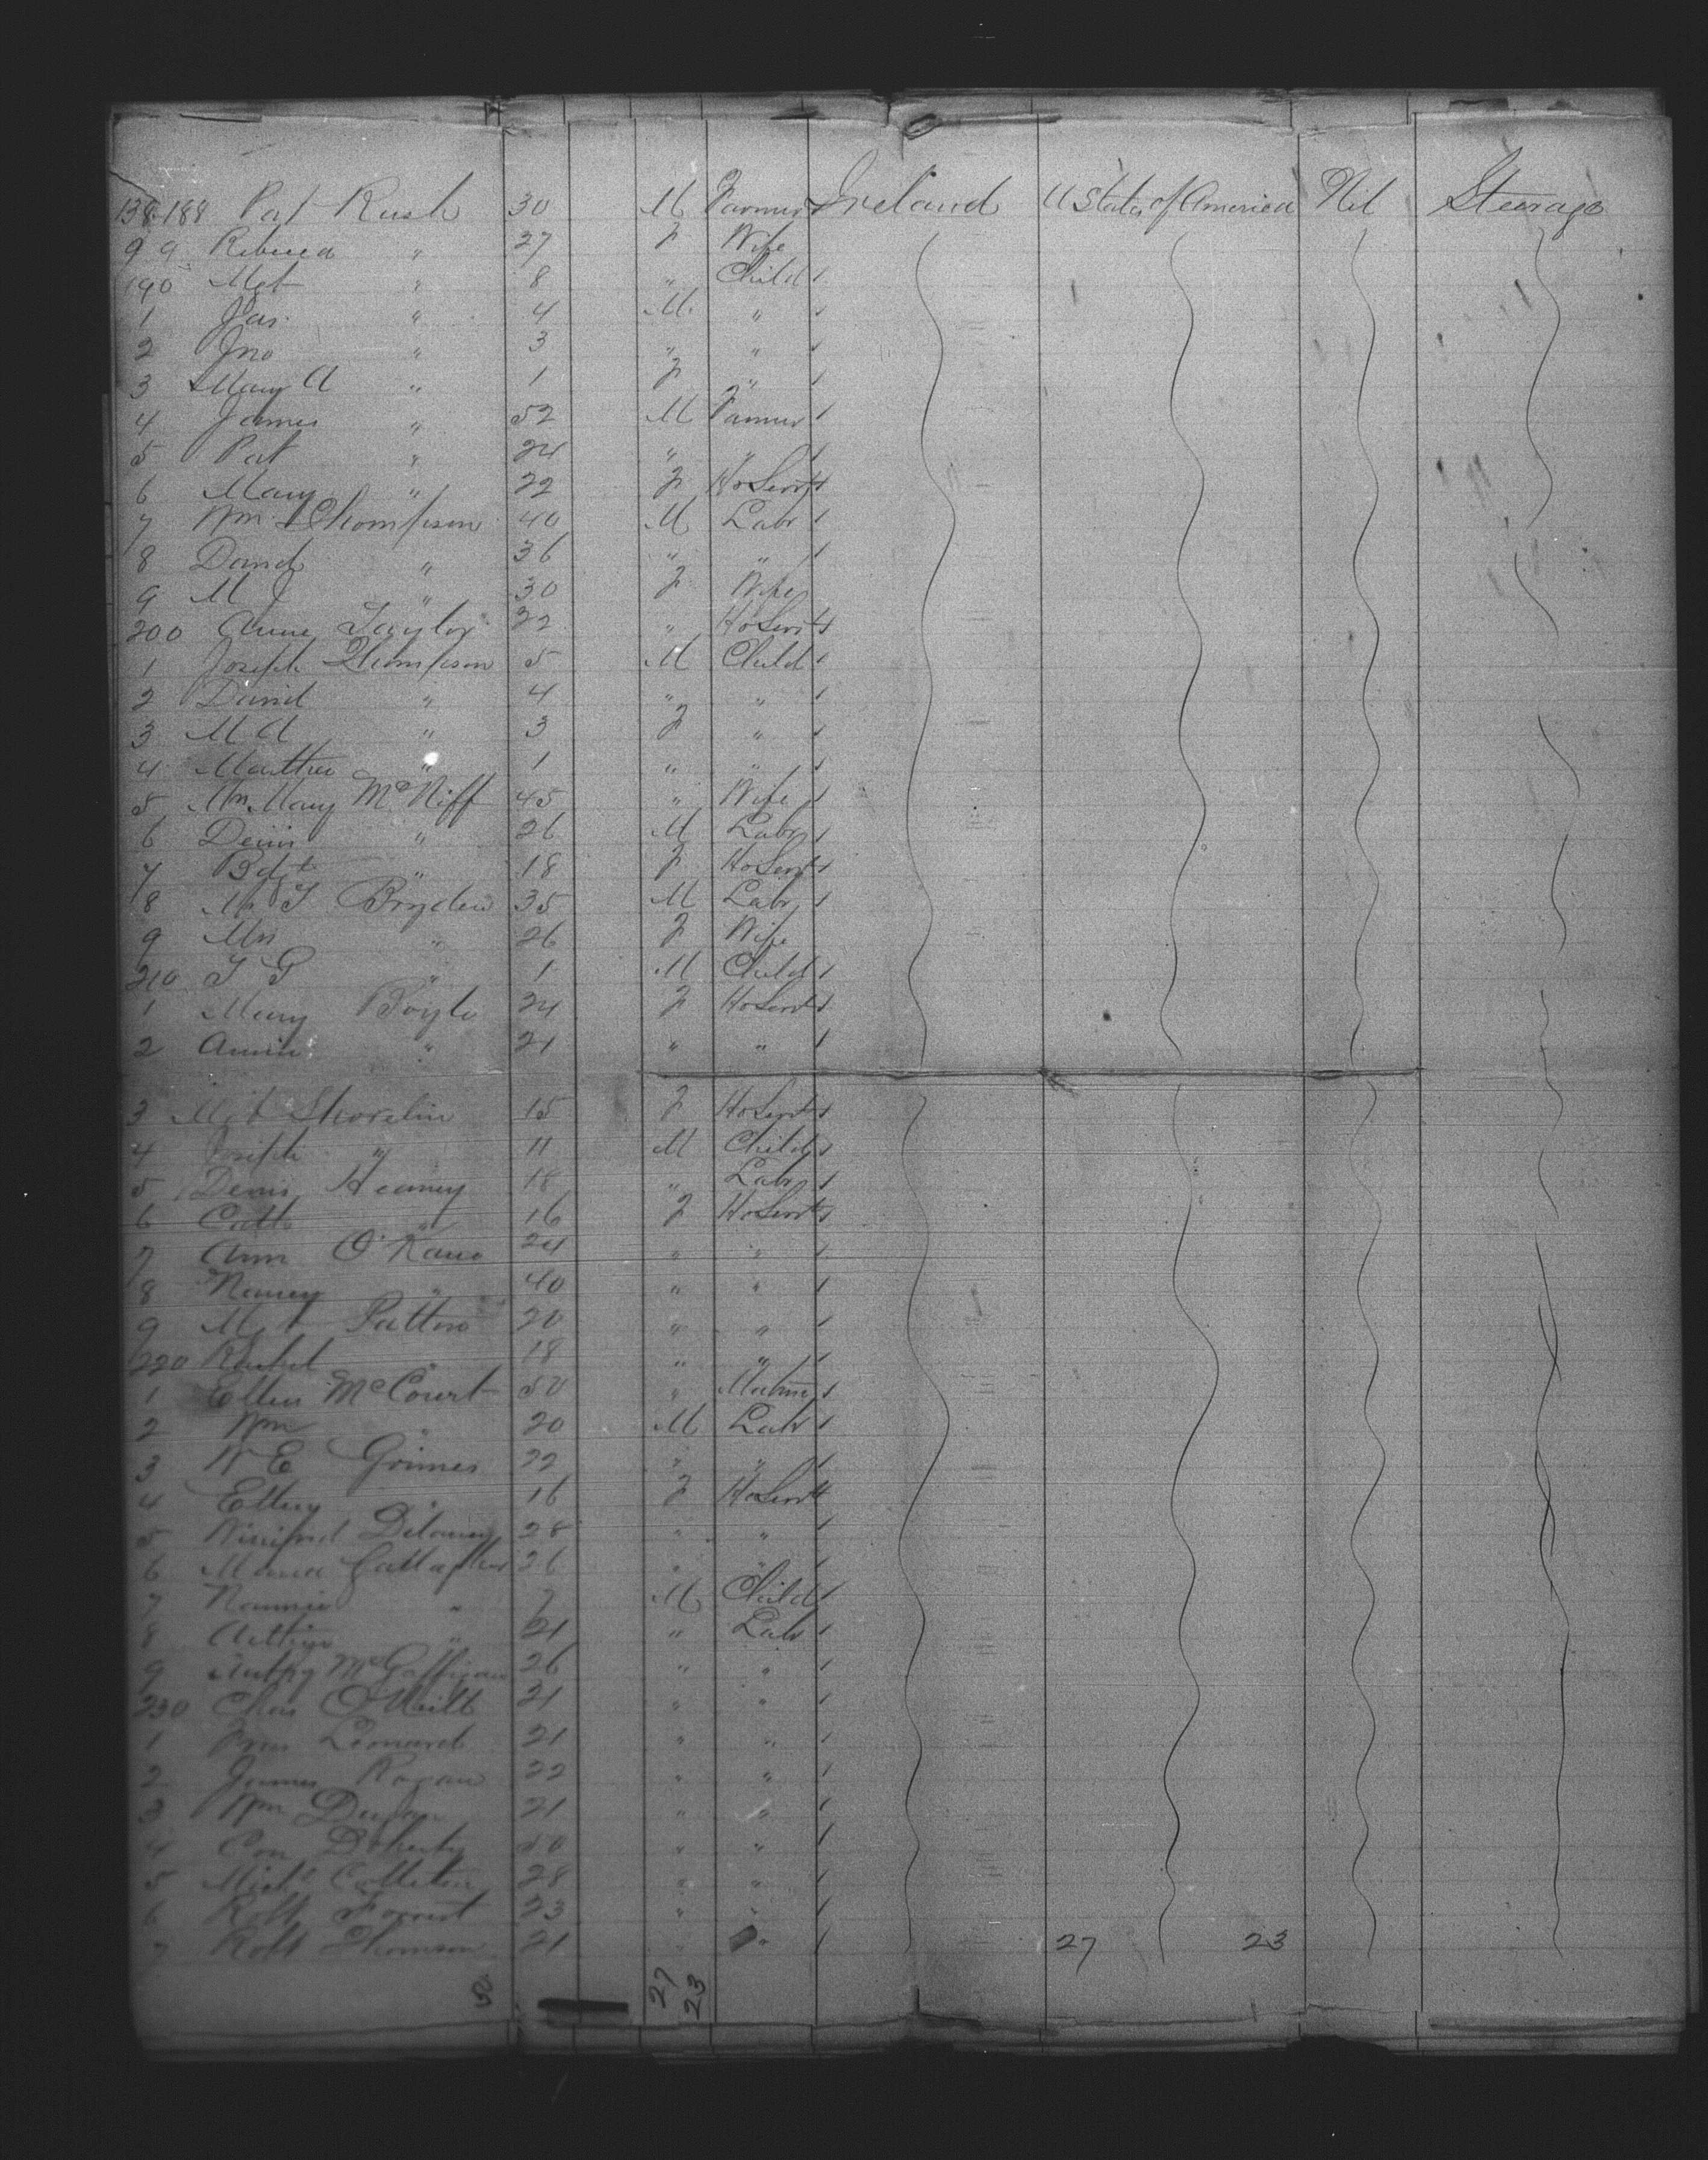 138 188 Pat Rush 30 M Farmer Ireland U States of America Nil Steerage
9 9 Rebecca " 27 F Wife
190 Mgt " 8 " Child 1
1 Jas. " 4 M " 1
2 Jno " 3 " " 1
3 Mary A " 1 F " 1
4 James " 52 M Farmer 1
5 Pat " 24 " " 1
6 Mary " 22 F HoServt 1
7 Wm Thompson 40 M Labr 1
8 David " 36 " " 1
9 M J " 30 F Wife
200 Anne Taylor 22 " HoServt 1
1 Joseph Thompson 5 M Child 1
2 David " 4 " " 1
3 M A " 3 F " 1
4 Matthew " 1 " " 1
5 Mrs Mary McNiff 45 " Wife 1
6 Denis " 26 M Labr 1
7 Bdgt " 18 F HoServt 1
8 Mr J Bryden 35 M Labr 1
9 Mrs " 26 F Wife
210 J G " 1 M Child 1
1 Mary Boyle 24 F HoServt 1
2 Annie " 21 " " 1
3 Mgt 15 F HoServt 1
4 Joseph " 11 M Child 1
5 Denis Heaney 18 " Labr 1
6 Cath " 16 F HoServt 1
7 Ann O'Kane 24 " " 1
8 Nancy " 40 " " 1
9 Mgt Patton 20 " " 1
220 Rachel " 18 " " 1
1 Ellen McCourt 50 " Matron 1
2 Wm " 20 M Labr 1
3 W E Grimes 22 " " 1
4 Ellen " 16 F HoServt 1
5 Winifred Delaney 28 " " 1
6 Maria Gallagher 26 " " 1
7 " 7 M Child 1
8 " 21 " Labr 1
9 McGaffigan 26 " " 1
230 Chas O'Neill 21 " " 1
1 Leonard 21 " " 1
2 James Rogan 22 " " 1
3 Wm 21 " " 1
4 Con Doherty " " 1
5 Michl 28 " " 1
6 Robt Forrest 23 " " 1
7 Robt Thomson 21 " " 1 27 23
27
23